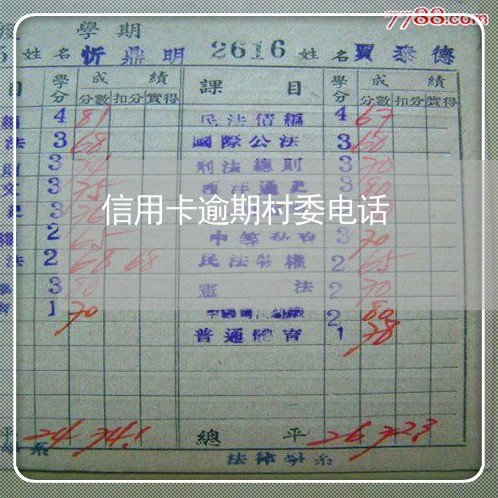 7788.com
學期
5 姓名 忻鼎明 2616 姓名 賈泰德
目 學分 成績 課目 學分 成績
分數 扣分 實得 分數 扣分 實得
4 81 民法債編 4 67
法 3 68 國際公法 3 60
3 刑法總則 3 70
文 3 75 西洋通史 3 80
信用卡逾期村委电话
權 2 65 3 70
法 2 68 68 民法物權 2 65
3 80 憲法 2 70
育 1 70 2 80
普通體育 1 78
平 24 74.1 總平 26 72.3
系 法律學系